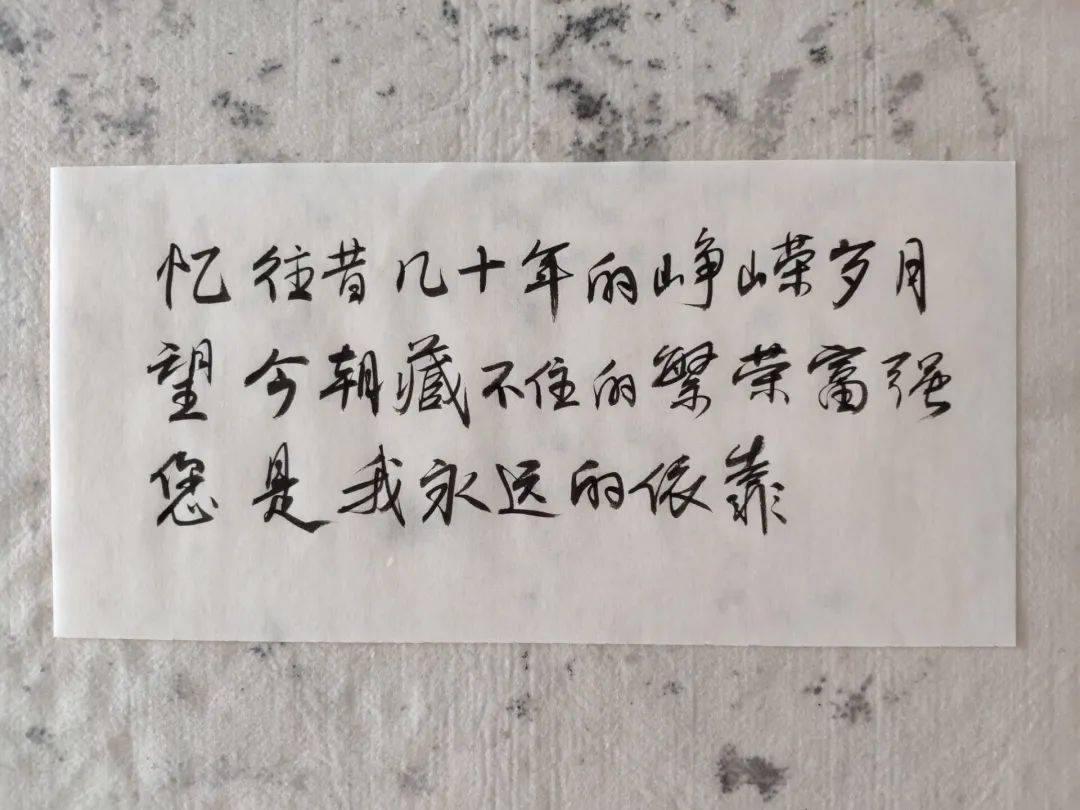 忆往昔几十年的峥嵘岁月
望今朝藏不住的繁荣富强
您是我永远的依靠